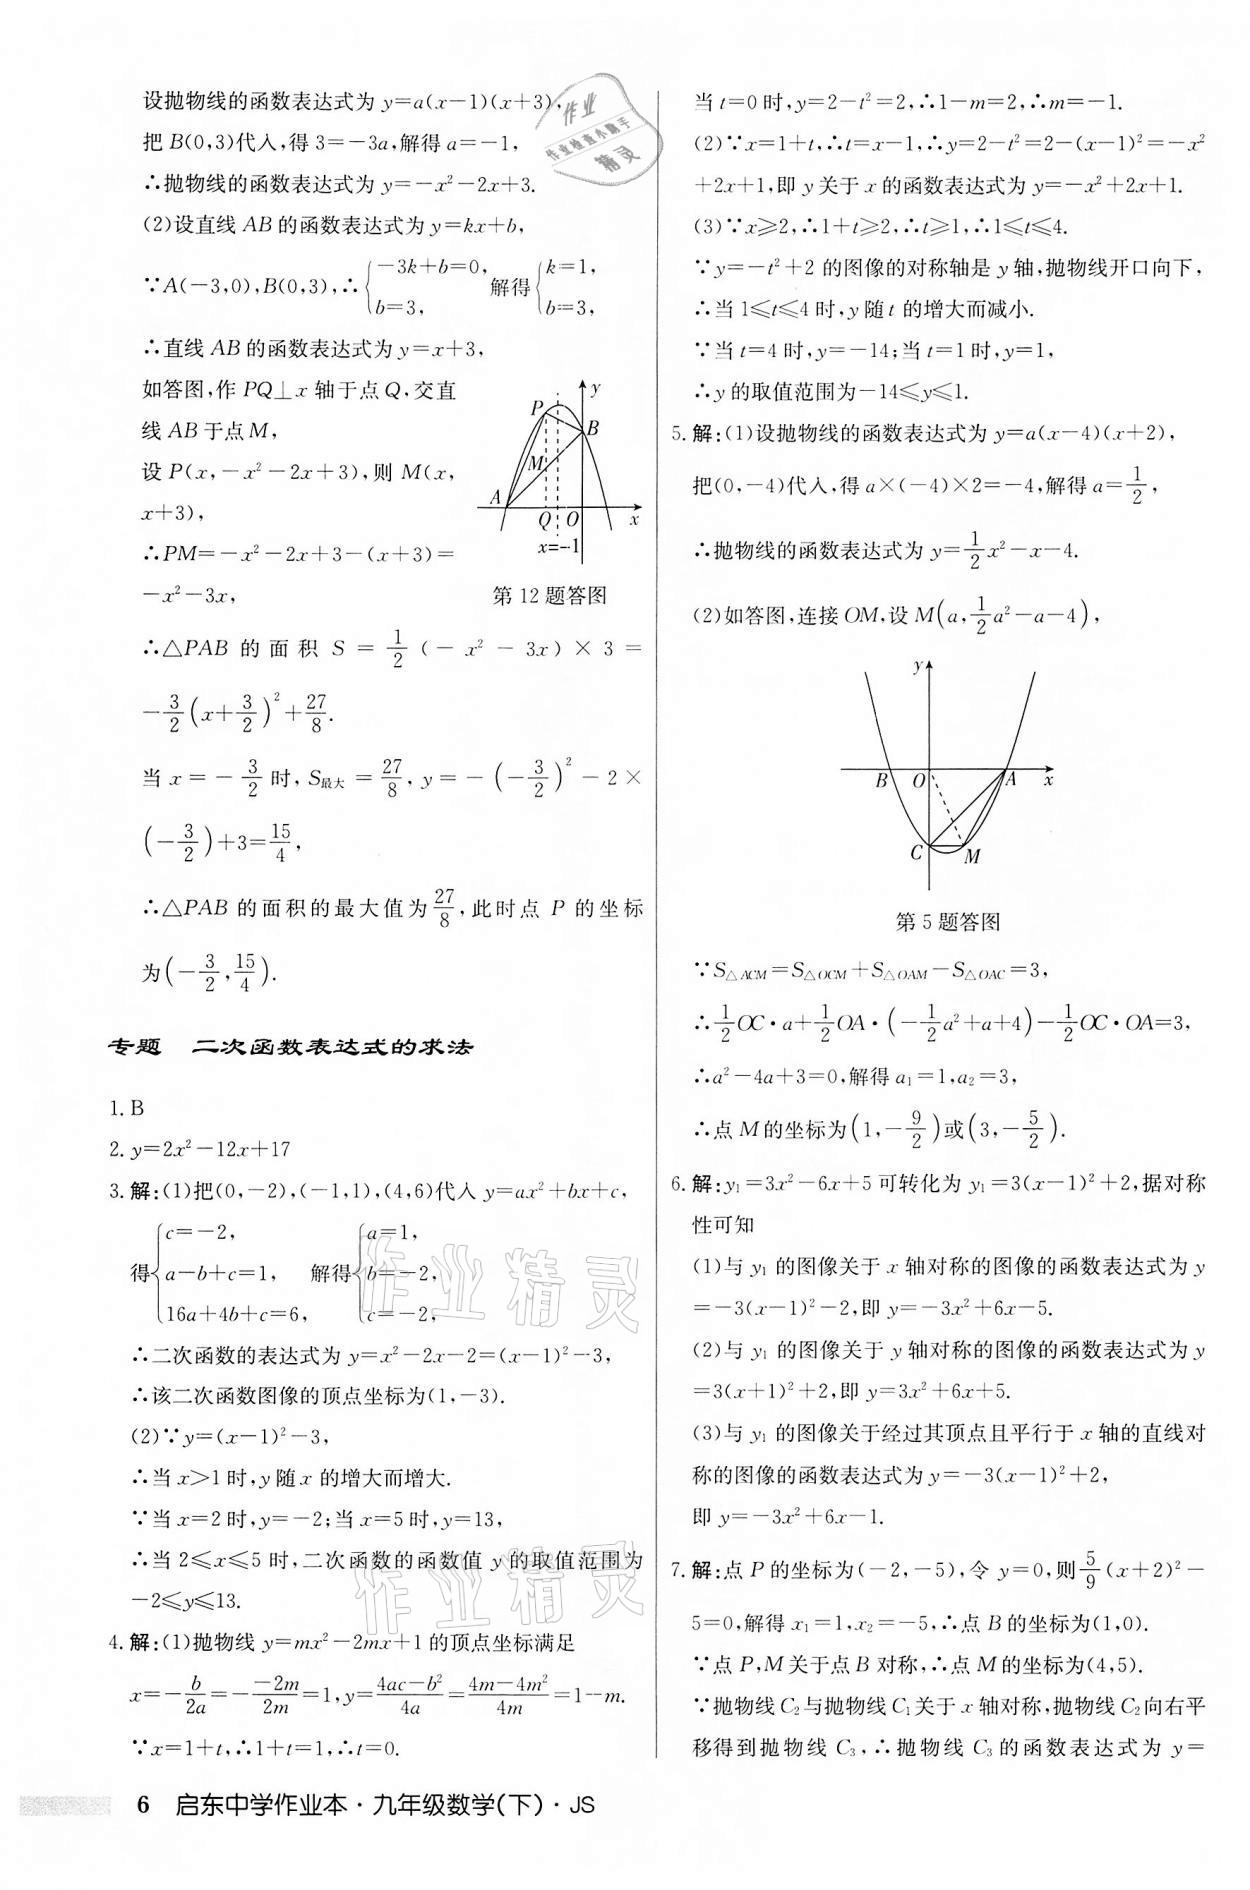 设抛物线的函数表达式为 y=a(x-1)(x+3),
把 B(0,3)代入,得 3=-3a,解得 a=-1,
∴抛物线的函数表达式为 y=-x²-2x+3.
(2)设直线 AB 的函数表达式为 y=kx+b,
∵A(-3,0),B(0,3),∴{-3k+b=0, b=3, 解得{k=1, b=3,
∴直线 AB 的函数表达式为 y=x+3,
如答图,作 PQ⊥x 轴于点 Q,交直
线 AB 于点 M,
设 P(x,-x²-2x+3),则 M(x,
x+3),
∴PM=-x²-2x+3-(x+3)=
-x²-3x,
y
P
B
M
A
Q
O
x
x=-1
第 12 题答图
∴△PAB 的面积 S=1/2(-x²-3x)×3=
-3/2(x+3/2)²+27/8.
当 x=-3/2 时,S最大=27/8,y=-(-3/2)²-2×
(-3/2)+3=15/4,
∴△PAB 的面积的最大值为27/8,此时点 P 的坐标
为(-3/2,15/4).
专题 二次函数表达式的求法
1. B
2. y=2x²-12x+17
3. 解:(1)把(0,-2),(-1,1),(4,6)代入 y=ax²+bx+c,
得{c=-2, a-b+c=1, 16a+4b+c=6, 解得{a=1, b=-2, c=-2,
∴二次函数的表达式为 y=x²-2x-2=(x-1)²-3,
∴该二次函数图像的顶点坐标为(1,-3).
(2)∵y=(x-1)²-3,
∴当 x>1 时,y 随 x 的增大而增大.
∵当 x=2 时,y=-2;当 x=5 时,y=13,
∴当 2≤x≤5 时,二次函数的函数值 y 的取值范围为
-2≤y≤13.
4. 解:(1)抛物线 y=mx²-2mx+1 的顶点坐标满足
x=-b/2a=-(-2m)/2m=1,y=(4ac-b²)/4a=(4m-4m²)/4m=1-m.
∵x=1+t,∴1+t=1,∴t=0.
当 t=0 时,y=2-t²=2,∴1-m=2,∴m=-1.
(2)∵x=1+t,∴t=x-1,∴y=2-t²=2-(x-1)²=-x²
+2x+1,即 y 关于 x 的函数表达式为 y=-x²+2x+1.
(3)∵x≥2,∴1+t≥2,∴t≥1,∴1≤t≤4.
∵y=-t²+2 的图像的对称轴是 y 轴,抛物线开口向下,
∴当 1≤t≤4 时,y 随 t 的增大而减小.
∵当 t=4 时,y=-14;当 t=1 时,y=1,
∴y 的取值范围为-14≤y≤1.
5. 解:(1)设抛物线的函数表达式为 y=a(x-4)(x+2),
把(0,-4)代入,得 a×(-4)×2=-4,解得 a=1/2,
∴抛物线的函数表达式为 y=1/2x²-x-4.
(2)如答图,连接 OM,设 M(a,1/2a²-a-4),
y
B
O
A
x
C
M
第 5 题答图
∵S△ACM=S△OCM+S△OAM-S△OAC=3,
∴1/2OC·a+1/2OA·(-1/2a²+a+4)-1/2OC·OA=3,
∴a²-4a+3=0,解得 a₁=1,a₂=3,
∴点 M 的坐标为(1,-9/2)或(3,-5/2).
6. 解:y₁=3x²-6x+5 可转化为 y₁=3(x-1)²+2,据对称
性可知
(1)与 y₁ 的图像关于 x 轴对称的图像的函数表达式为 y
=-3(x-1)²-2,即 y=-3x²+6x-5.
(2)与 y₁ 的图像关于 y 轴对称的图像的函数表达式为 y
=3(x+1)²+2,即 y=3x²+6x+5.
(3)与 y₁ 的图像关于经过其顶点且平行于 x 轴的直线对
称的图像的函数表达式为 y=-3(x-1)²+2,
即 y=-3x²+6x-1.
7. 解:点 P 的坐标为(-2,-5),令 y=0,则5/9(x+2)²-
5=0,解得 x₁=1,x₂=-5,∴点 B 的坐标为(1,0).
∵点 P,M 关于点 B 对称,∴点 M 的坐标为(4,5).
∵抛物线 C₂与抛物线 C₁关于 x 轴对称,抛物线 C₂向右平
移得到抛物线 C₃,∴抛物线 C₃的函数表达式为 y=
6 启东中学作业本·九年级数学(下)·JS
作业
作业检查小助手
精灵
作业精灵
作业精灵